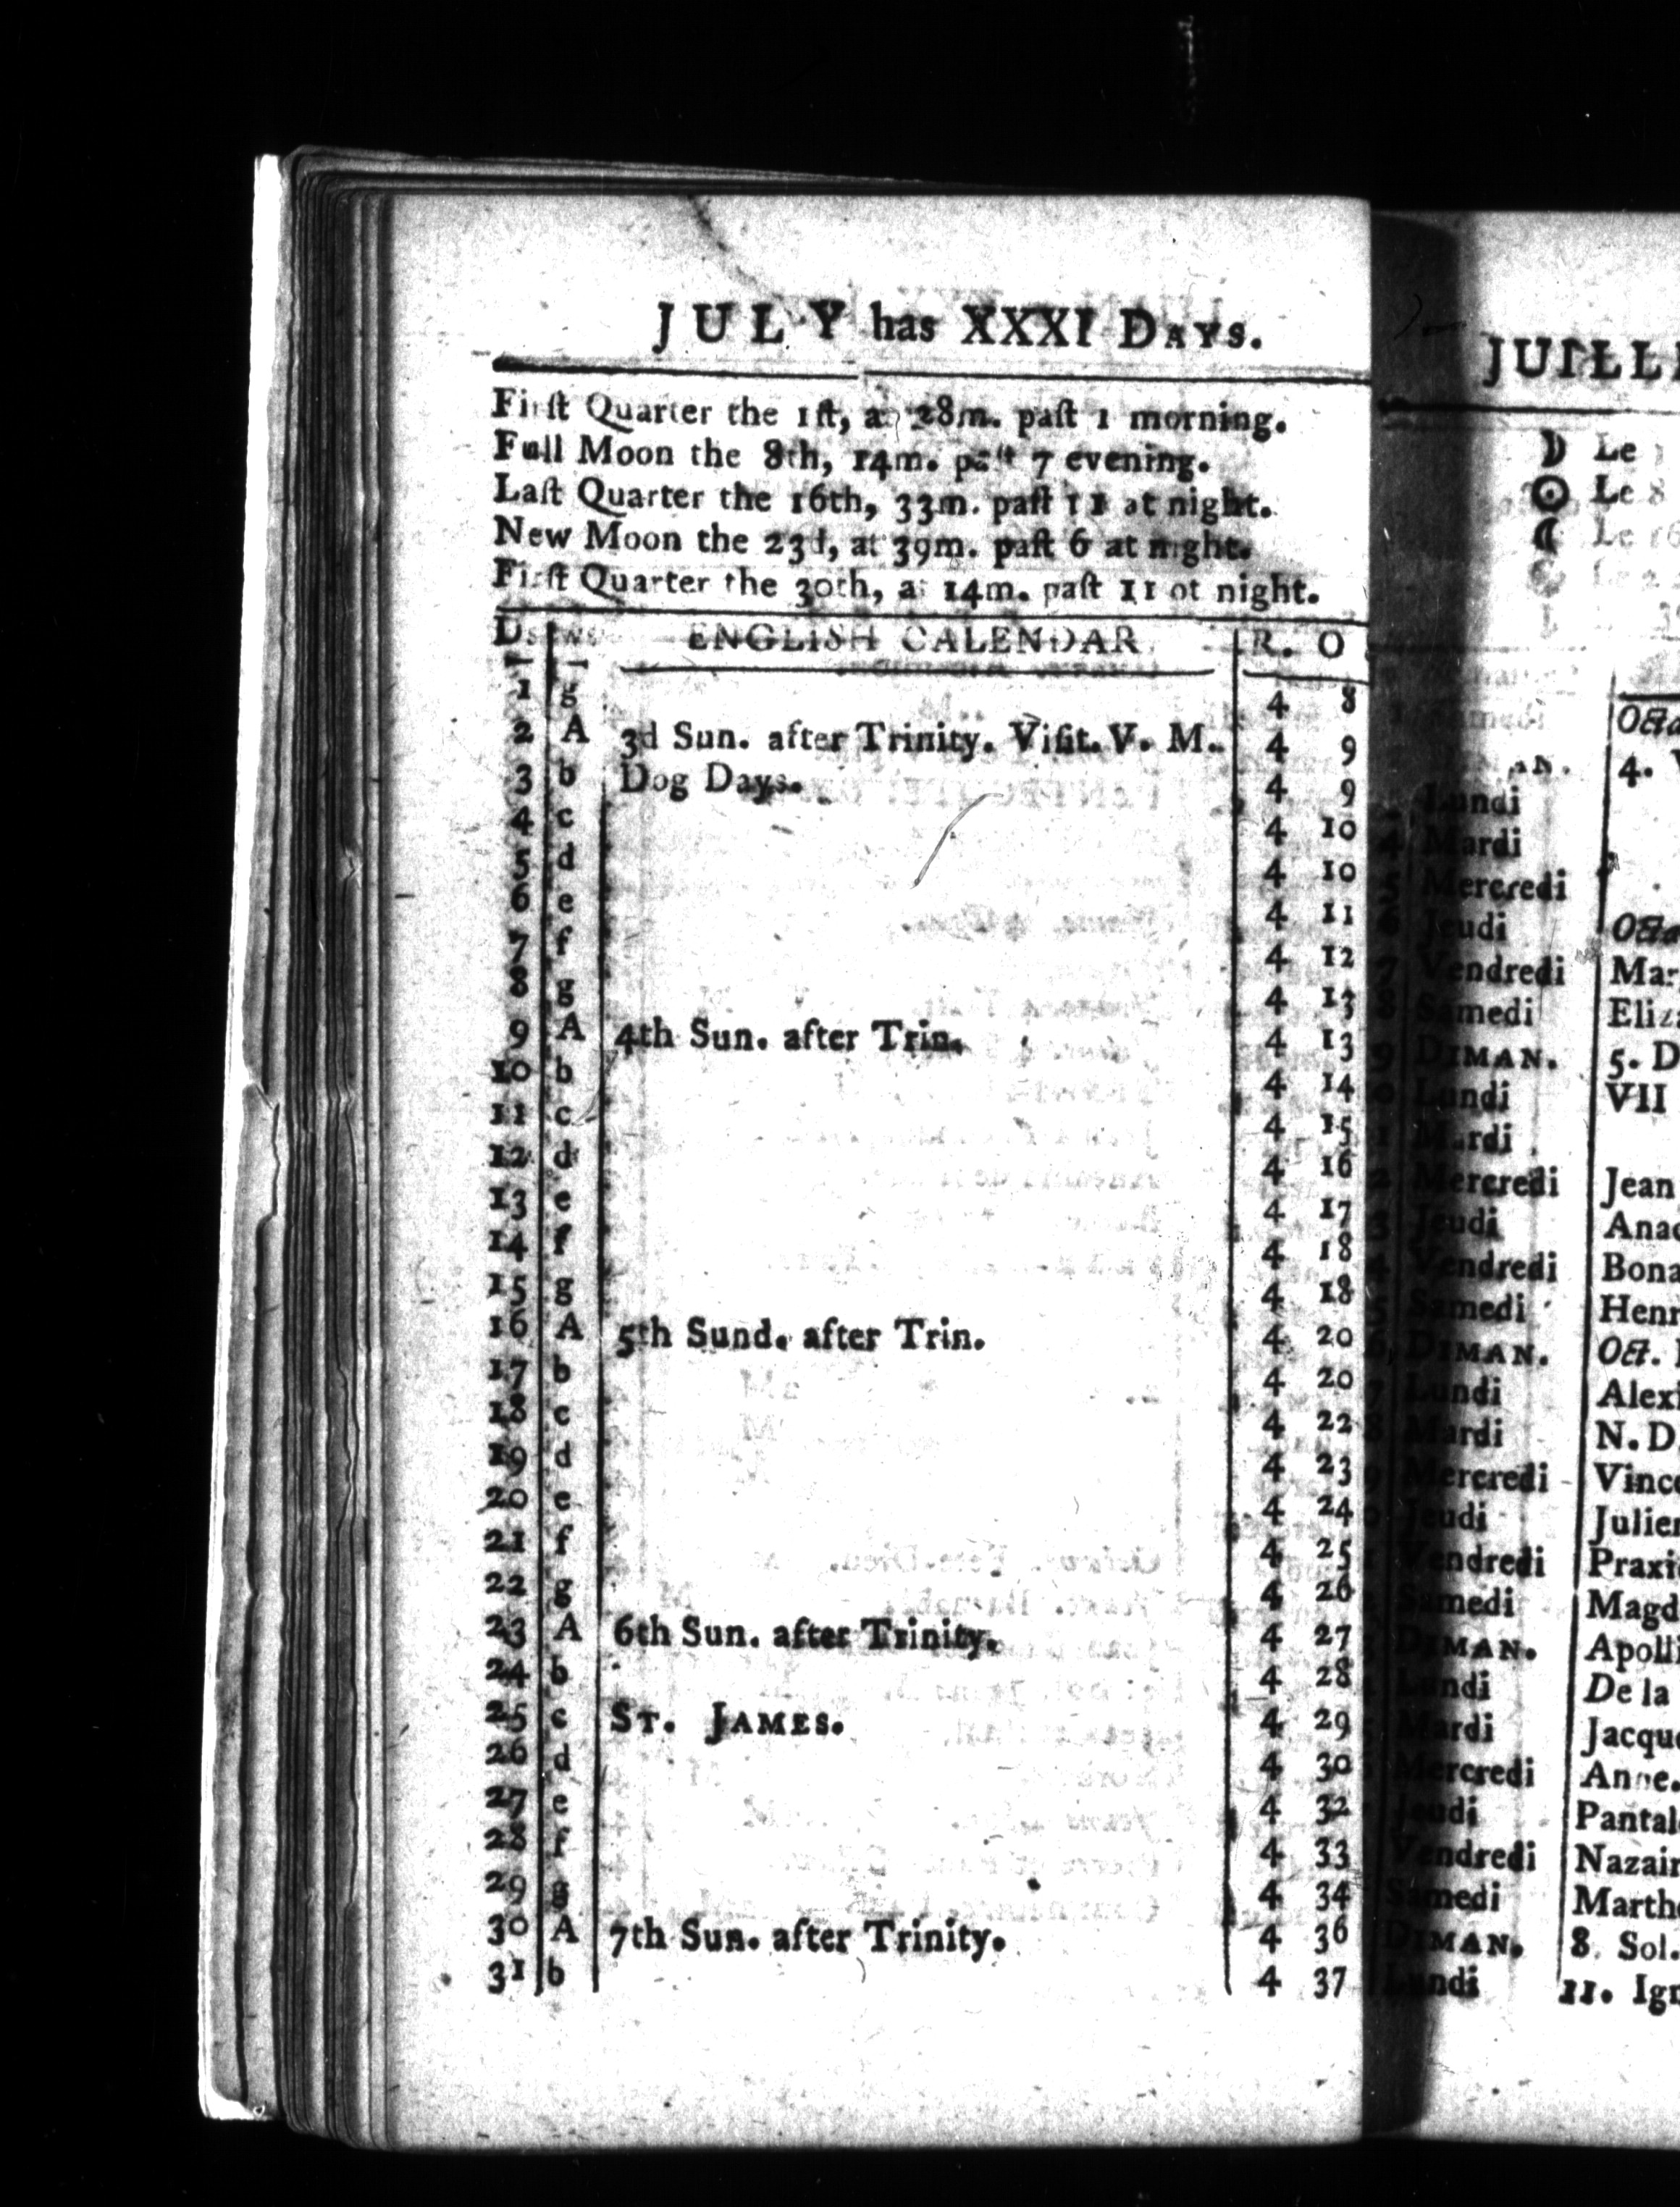 JULY has XXXI DAYS.
Firſt Quarter the 1ſt, a 28m. paſt 1 morning.
Full Moon the 8th, 14m. paſt 7 evening.
Laſt Quarter the 16th, 33m. paſt 11 at night.
New Moon the 23d, at 39m. paſt 6 at night.
Firſt Quarter the 30th, a 14m. paſt 11 ot night.
Ds ENGLISH CALENDAR R. O
1 g 4 8
2 A 3d Sun. after Trinity. Viſit. V. M. 4 9
3 b Dog Days. 4 9
4 c 4 10
5 d 4 10
6 e 4 11
7 f 4 12
8 g 4 13
9 A 4th Sun. after Trin. 4 13
10 b 4 14
11 c 4 15
12 d 4 16
13 e 4 17
14 f 4 18
15 g 4 18
16 A 5th Sund. after Trin. 4 20
17 b 4 20
18 c 4 22
19 d 4 23
20 e 4 24
21 f 4 25
22 g 4 26
23 A 6th Sun. after Trinity. 4 27
24 b 4 28
25 c ST. JAMES. 4 29
26 d 4 30
27 e 4 32
28 f 4 33
29 g 4 34
30 A 7th Sun. after Trinity. 4 36
31 b 4 37
JUILL
☽ Le
☉ Le 8
☾ Le
Octa
AN. 4.
Lundi
4 Mardi
5 Mercredi
6 Jeudi Octa
7 Vendredi Mar
8 Samedi Eliz
9 DIMAN. 5. D
Lundi VII
Mardi
2 Mercredi Jean
3 Jeudi Anac
4 Vendredi Bona
5 Samedi Henr
6 DIMAN. Oct.
7 Lundi Alexi
8 Mardi N. D
9 Mercredi Vince
0 Jeudi Julien
Vendredi Praxi
Samedi Magd
DIMAN. Apolli
Lundi De la
Mardi Jacque
Mercredi Anne.
Jeudi Pantal
Vendredi Nazair
Samedi Marth
DIMAN. 8. Sol.
Lundi 11. Ign